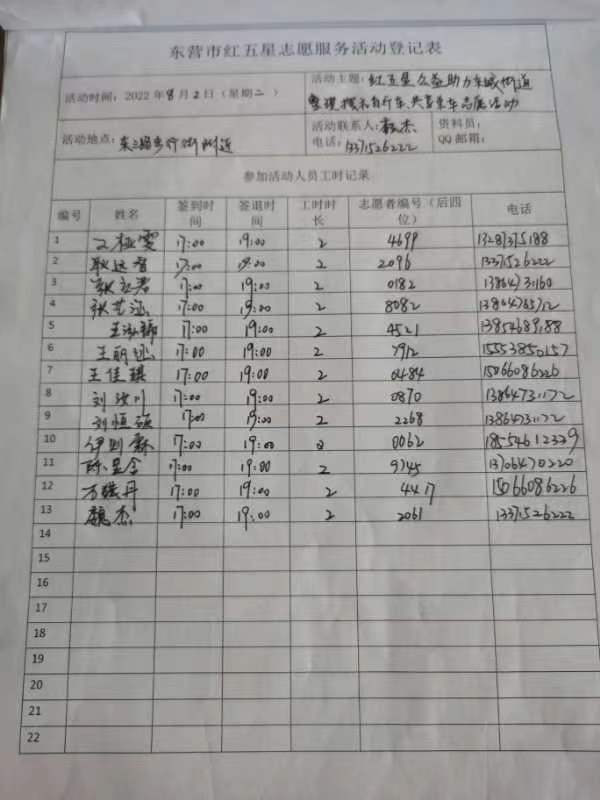 东营市红五星志愿服务活动登记表
活动时间：2022年8月2日（星期二） 活动主题：红五星公益助力东城街道
整理摆示自行车、共享单车志愿活动
活动地点：东三路 街道 活动联系人：魏杰 资料员：
电话：13371526222 QQ邮箱：
参加活动人员工时记录
编号 姓名 签到时间 签退时间 工时时长 志愿者编号（后四位） 电话
1 17:00 19:00 2 4699
2 17:00 19:00 2 2096 13371526222
3 17:00 19:00 2 0182
4 张艺涵 17:00 19:00 2 8082
5 17:00 19:00 2 4521 13854689188
6 17:00 19:00 2 7912 15553850157
7 王佳琪 17:00 19:00 2 0484 15066086226
8 刘汶川 17:00 19:00 2 0870 13864731172
9 刘恒硕 17:00 19:00 2 2268 13864731172
10 17:00 19:00 2 0062 18554612339
11 17:00 19:00 2 9745 13706470220
12 17:00 19:00 2 4417 15066086226
13 魏杰 17:00 19:00 2 2061 13371526222
14
15
16
17
18
19
20
21
22